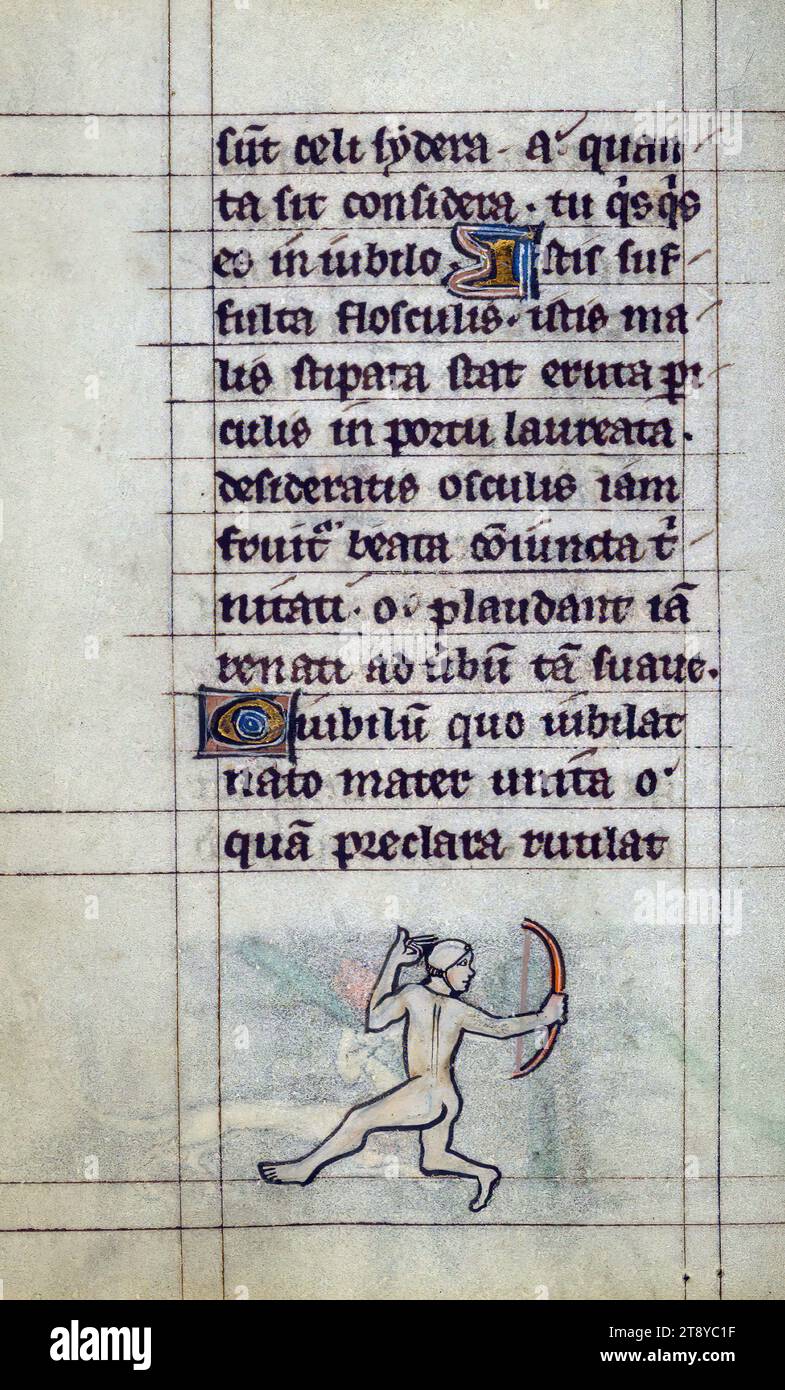 sūt celi sydera. a quan
ta sit considera. tu q̇sq̇s
es in iubilo. Istis suf
fulta flosculis. istis ma
lis stipata stat eruta pi
culis in portu laureata.
desideratis osculis iam
fouitᵃ beata cōiuncta tⁱ
nitati. o. plaudant iā
renati ad tubū tā suaue.
O iubilū quo iubilat
nato mater unita o
quā preclara rutilat
alamy
Image ID: 2T8YC1F
www.alamy.com